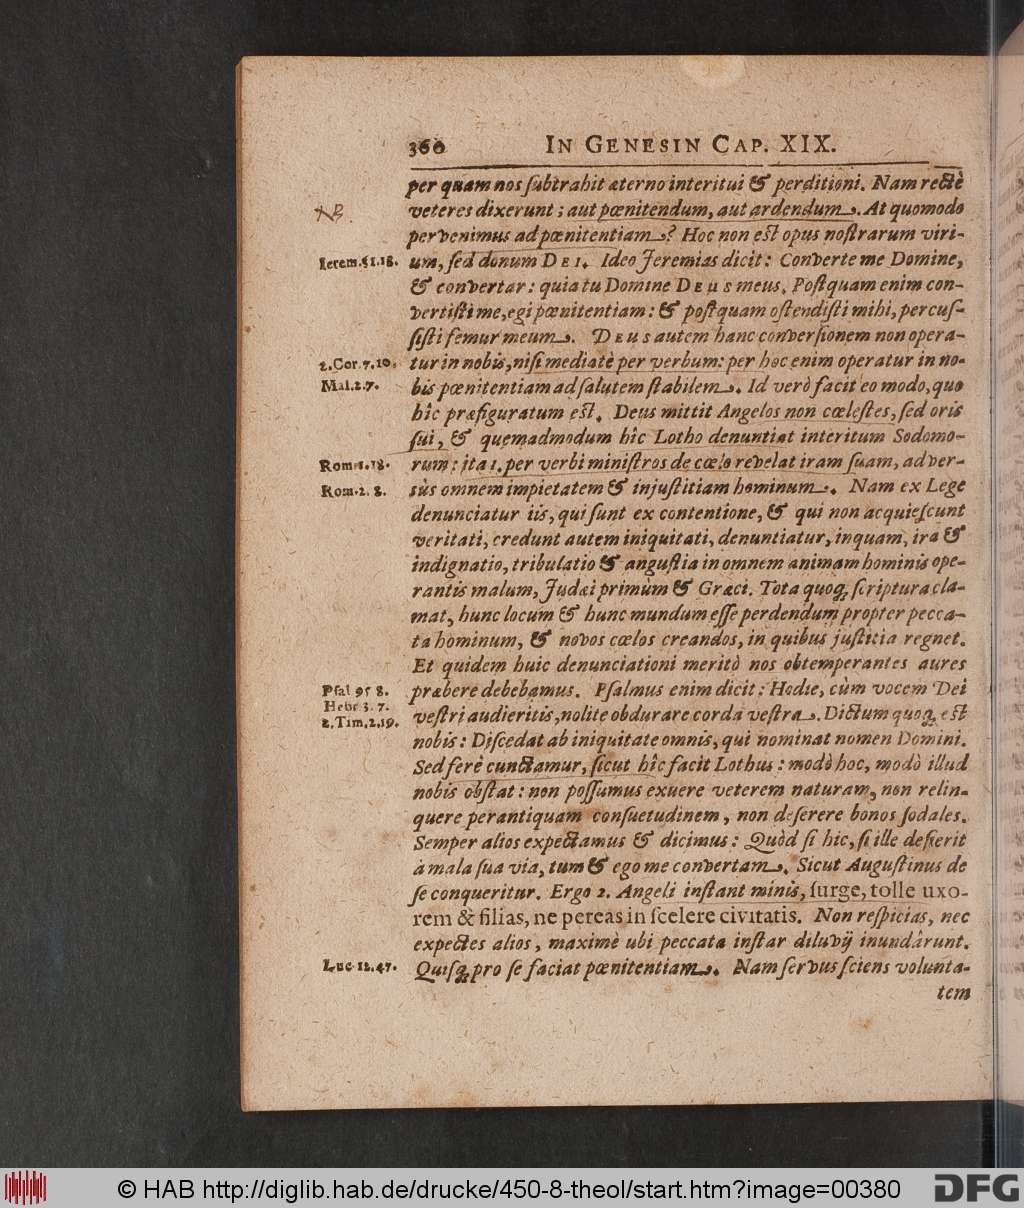 360 IN GENESIN CAP. XIX.
per quam nos ſubtrahit æterno interitui & perditioni. Nam rectè
NB.
veteres dixerunt; aut pœnitendum, aut ardendum. At quomodo
pervenimus ad pœnitentiam? Hoc non eſt opus noſtrarum viri-
Ierem. 51.18.
um, ſed donum DEI. Ideo Jeremias dicit: Converte me Domine,
& convertar: quia tu Domine DEUS meus. Poſtquam enim con-
vertiſti me, egi pœnitentiam: & poſtquam oſtendiſti mihi, percuſ-
ſiſti femur meum. DEUS autem hanc converſionem non opera-
2.Cor.7.10.
tur in nobis, niſi mediatè per verbum: per hoc enim operatur in no-
Mal.2.7.
bis pœnitentiam ad ſalutem ſtabilem. Id verò facit eo modo, quo
hîc præfiguratum eſt. Deus mittit Angelos non cœleſtes, ſed oris
ſui, & quemadmodum hîc Lotho denuntiat interitum Sodomo-
Rom.1.18.
rum: ita 1. per verbi miniſtros de cœlo revelat iram ſuam, adver-
Rom.2.8.
sùs omnem impietatem & injuſtitiam hominum. Nam ex Lege
denunciatur iis, qui ſunt ex contentione, & qui non acquieſcunt
veritati, credunt autem iniquitati, denuntiatur, inquam, ira &
indignatio, tribulatio & anguſtia in omnem animam hominis ope-
rantis malum, Judæi primum & Græci. Tota quoq; ſcriptura cla-
mat, hunc locum & hunc mundum eſſe perdendum propter pecca-
ta hominum, & novos cœlos creandos, in quibus juſtitia regnet.
Et quidem huic denunciationi meritò nos obtemperantes aures
Pſal 95 8.
præbere debebamus. Pſalmus enim dicit: Hodie, cùm vocem Dei
Hebr 3. 7.
2.Tim.2.19.
veſtri audieritis, nolite obdurare corda veſtra. Dictum quoq; eſt
nobis: Diſcedat ab iniquitate omnis, qui nominat nomen Domini.
Sed ferè cunctamur, ſicut hîc facit Lothus: modò hoc, modò illud
nobis obſtat: non poſſumus exuere veterem naturam, non relin-
quere perantiquam conſuetudinem, non deſerere bonos ſodales.
Semper alios expectamus & dicimus: Quòd ſi hic, ſi ille deſierit
à mala ſua via, tum & ego me convertam. Sicut Auguſtinus de
ſe conqueritur. Ergo 2. Angeli inſtant minis, ſurge, tolle uxo-
rem & filias, ne pereas in ſcelere civitatis. Non reſpicias, nec
expectes alios, maximè ubi peccata inſtar diluvij inundârunt.
Luc 12.47.
Quiſq; pro ſe faciat pœnitentiam. Nam ſervus ſciens volunta-
tem
© HAB http://diglib.hab.de/drucke/450-8-theol/start.htm?image=00380
DFG